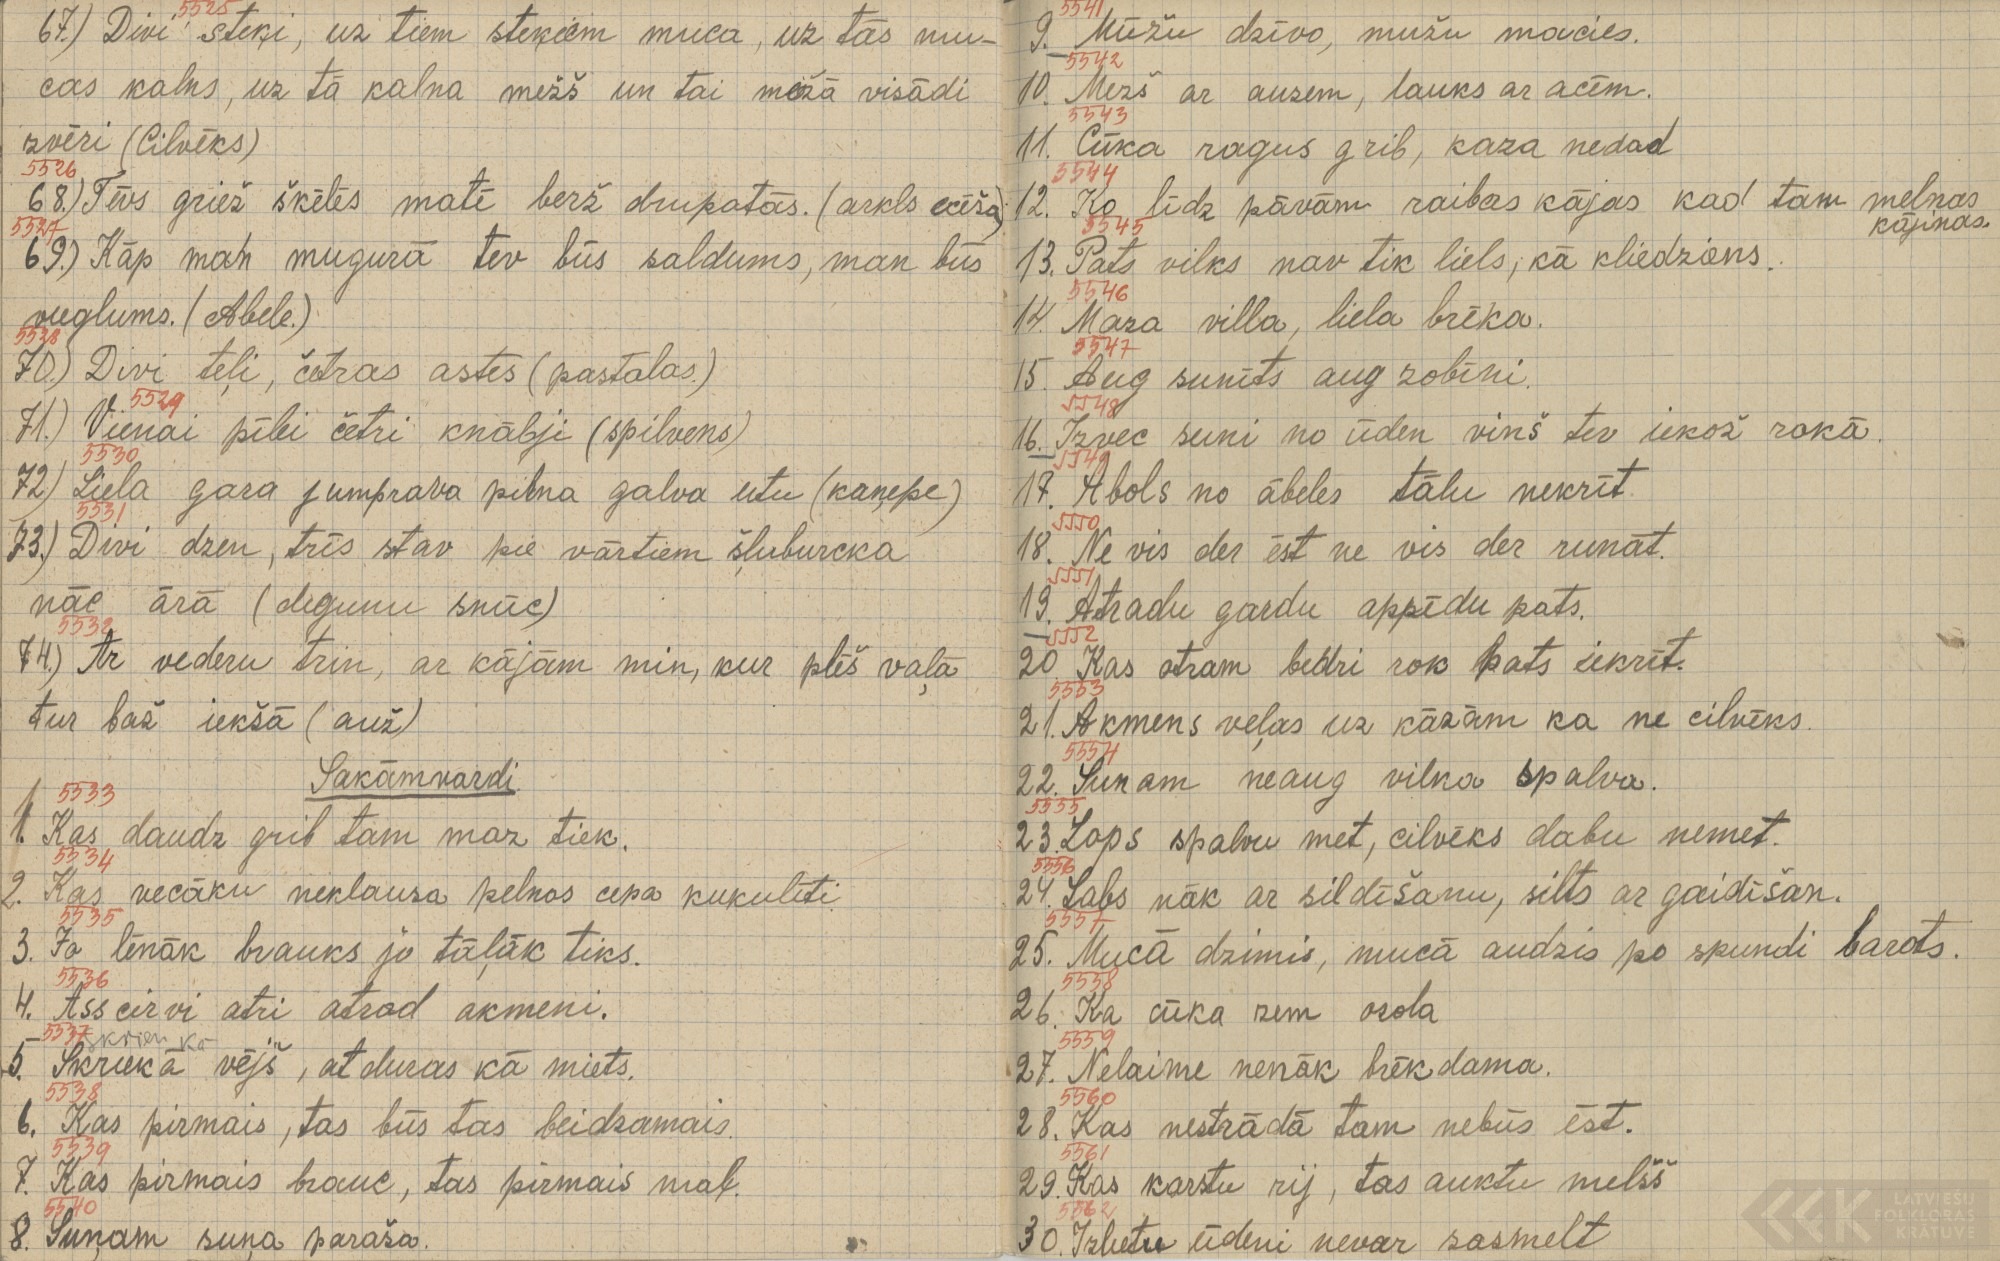 5525
67.) Divi steķi, uz tiem steķiem muca, uz tās mu-
cas kalns, uz tā kalna mežš un tai mežā visādi
zvēri (Cilvēks)
5526
68.) Tēvs griež šķēlēs matē berž drupatās. (arkls ecēša)
5527
69.) Kāp man mugurā tev būs saldums, man būs
vieglums. (Abele.)
5528
70.) Divi teļi, četras astes (pastalas.)
5529
71.) Vienai pīlei četri knābji (spilvens)
5530
72) Liela gara jumprava pilna galva utu (kaņepe)
5531
73.) Divi dzen, trīs stav pie vārtiem šļuburcka
nāc ārā (degunu snūc)
5532
74.) Ar vederu trin, ar kājām min, kur plēš vaļā
tur baž iekšā (auž)
Sakāmvardi
5533
1. Kas daudz grib tam maz tiek.
5534
2. Kas vecāku neklausa pelnos cepa kukulīti
5535
3. Jo lēnāk brauks jo tāļāk tiks.
5536
4. Ass cirvi atri atrod akmeni.
5537
skrien kā
5. Skriekā vējš, atduras kā miets.
5538
6. Kas pirmais, tas būs tas beidzamais.
5539
7. Kas pirmais brauc, tas pirmais mal.
5540
8. Suņam suņa paraša.
5541
9. Mūžu dzīvo, mužu macies.
5542
10. Mezš ar ausem, lauks ar acēm.
5543
11. Cūka ragus grib, kaza nedod
5544
12. Ko līdz pāvam raibas kājas kad tam melnas
kājinas.
5545
13. Pats vilks nav tik liels, kā kliedziens.
5546
14. Maza villa, liela brēka.
5547
15. Aug sunīts aug zobiņi.
5548
16. Izvec suni no ūden vinš tev iekož rokā.
5549
17. Abols no ābeles tālu nekrīt
5550
18. Ne vis der ēst ne vis der runāt.
5551
19. Atradu gardu appēdu pats.
5552
20. Kas otram bedri rok pats iekrīt.
5553
21. Akmens veļas uz kāzām ka ne cilvēks.
5554
22. Sunam neaug vilka spalva.
5555
23. Lops spalvu met, cilvēks dabu nemet.
5556
24. Labs nāk ar sildīšanu, silts ar gaidīšan.
5557
25. Mucā dzimis, mucā audzis po spundi barots.
5558
26. Ka cūka zem ozola
5559
27. Nelaime nenāk brēkdama.
5560
28. Kas nestrādā tam nebūs ēst.
5561
29. Kas karstu rij, tas auktu melšš
5562
30. Izlietu ūdeni nevar sasmelt
LATVIEŠU
FOLKLORAS
KRĀTUVE